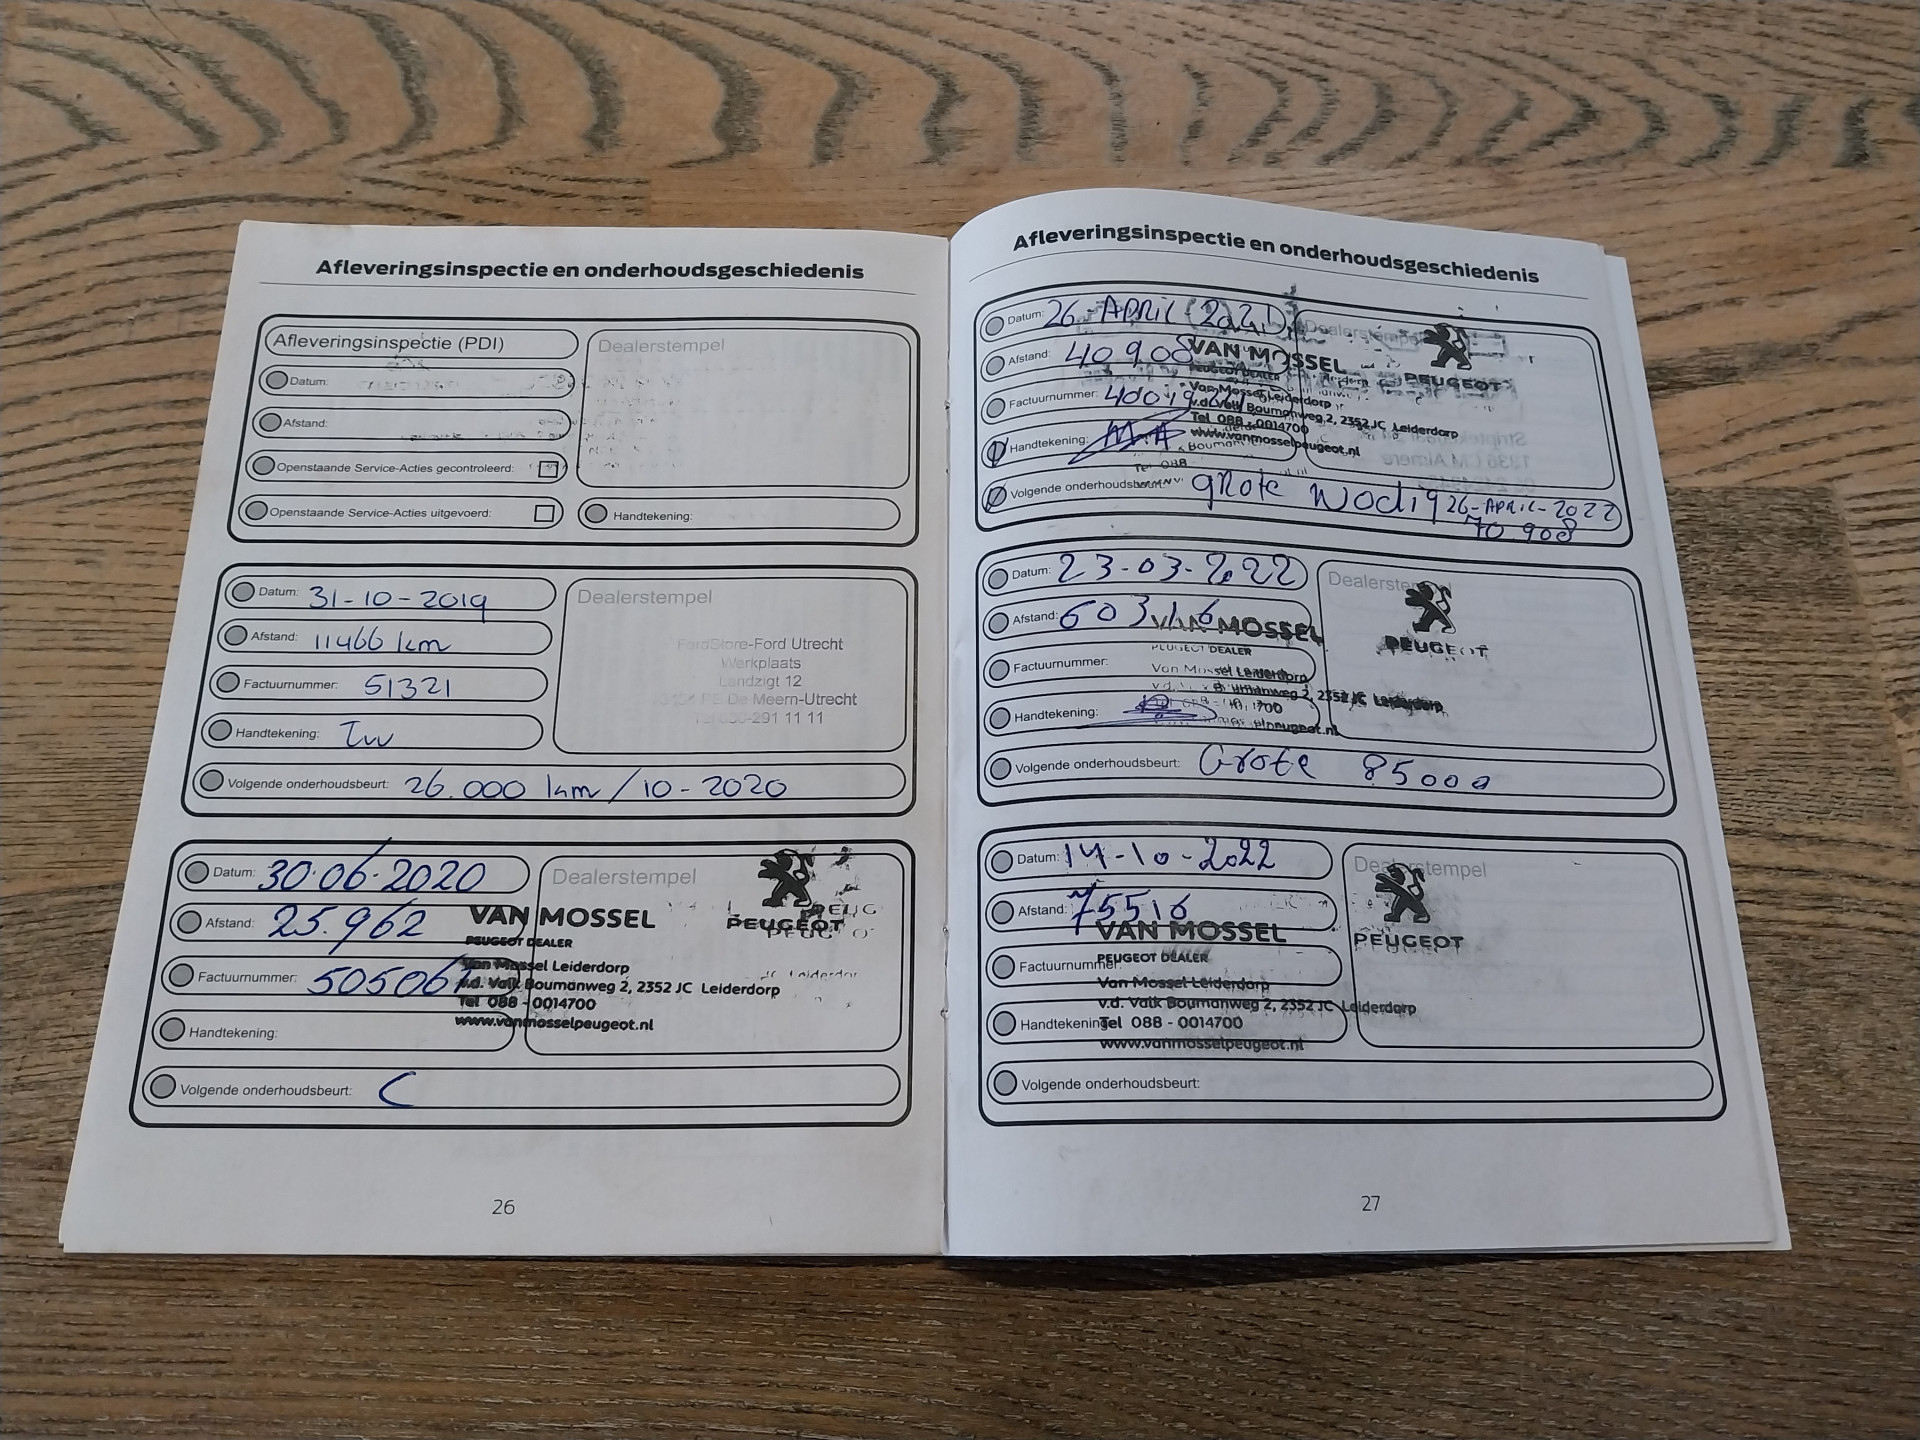 Afleveringsinspectie en onderhoudsgeschiedenis
Afleveringsinspectie (PDI)
Dealerstempel
Datum:
Afstand:
Openstaande Service-Acties gecontroleerd:
Openstaande Service-Acties uitgevoerd:
Handtekening:
Datum: 31-10-2019
Dealerstempel
Afstand: 11466 km
FordStore-Ford Utrecht
Werkplaats
Factuurnummer: 51321
Landzigt 12
De Meern-Utrecht
291 11 11
Handtekening: Tw
Volgende onderhoudsbeurt: 26.000 km / 10-2020
Datum: 30-06-2020
Dealerstempel
PEUGEOT
Afstand: 25.962
VAN MOSSEL
PEUGEOT DEALER
Factuurnummer: 505061
Van Mossel Leiderdorp
v.d. Valk Boumanweg 2, 2352 JC Leiderdorp
Tel 088 - 0014700
www.vanmosselpeugeot.nl
Handtekening:
Volgende onderhoudsbeurt: C
26
Afleveringsinspectie en onderhoudsgeschiedenis
Datum: 26-APRIL (2021)
Dealerstempel
PEUGEOT
Afstand: 40908
VAN MOSSEL
PEUGEOT DEALER
Factuurnummer:
Van Mossel Leiderdorp
v.d. Valk Boumanweg 2, 2352 JC Leiderdorp
Tel 088 - 0014700
www.vanmosselpeugeot.nl
Handtekening:
Volgende onderhoudsbeurt: grote 26-APRIL-2022
70 908
Datum: 23-03-2022
Dealerstempel
PEUGEOT
Afstand: 60316
VAN MOSSEL
PEUGEOT DEALER
Factuurnummer:
Van Mossel Leiderdorp
Boumanweg 2, 2352 JC Leiderdorp
Handtekening:
Volgende onderhoudsbeurt: Grote 85000
Datum: 14-10-2022
Dealerstempel
PEUGEOT
Afstand: 75516
VAN MOSSEL
PEUGEOT DEALER
Factuurnummer:
Van Mossel Leiderdorp
v.d. Valk Boumanweg 2, 2352 JC Leiderdorp
Handtekening:
Tel 088 - 0014700
www.vanmosselpeugeot.nl
Volgende onderhoudsbeurt:
27